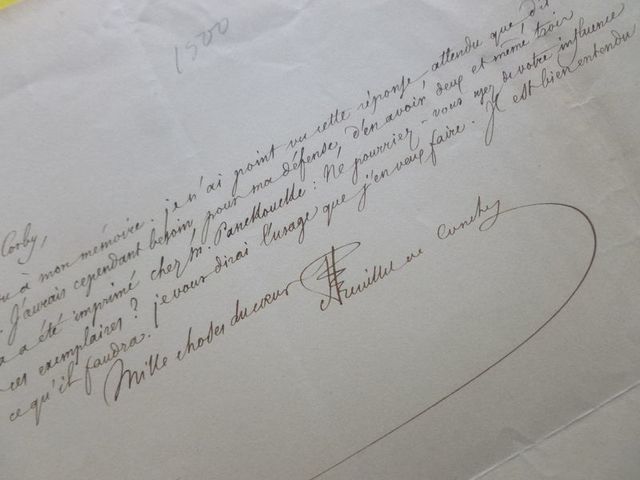 1500
Corby,
à mon mémoire. je n'ai point vu cette réponse, attendu que dit
. J'aurais cependant besoin, pour ma défense, d'en avoir deux et même trois
a été imprimé chez M. Panckoucke: Ne pourriez-vous user de votre influence
ces exemplaires? je vous dirai l'usage que j'en veux faire. Il est bien entendu
ce qu'il faudra.
Mille choses du cœur
Feuillet de Conches